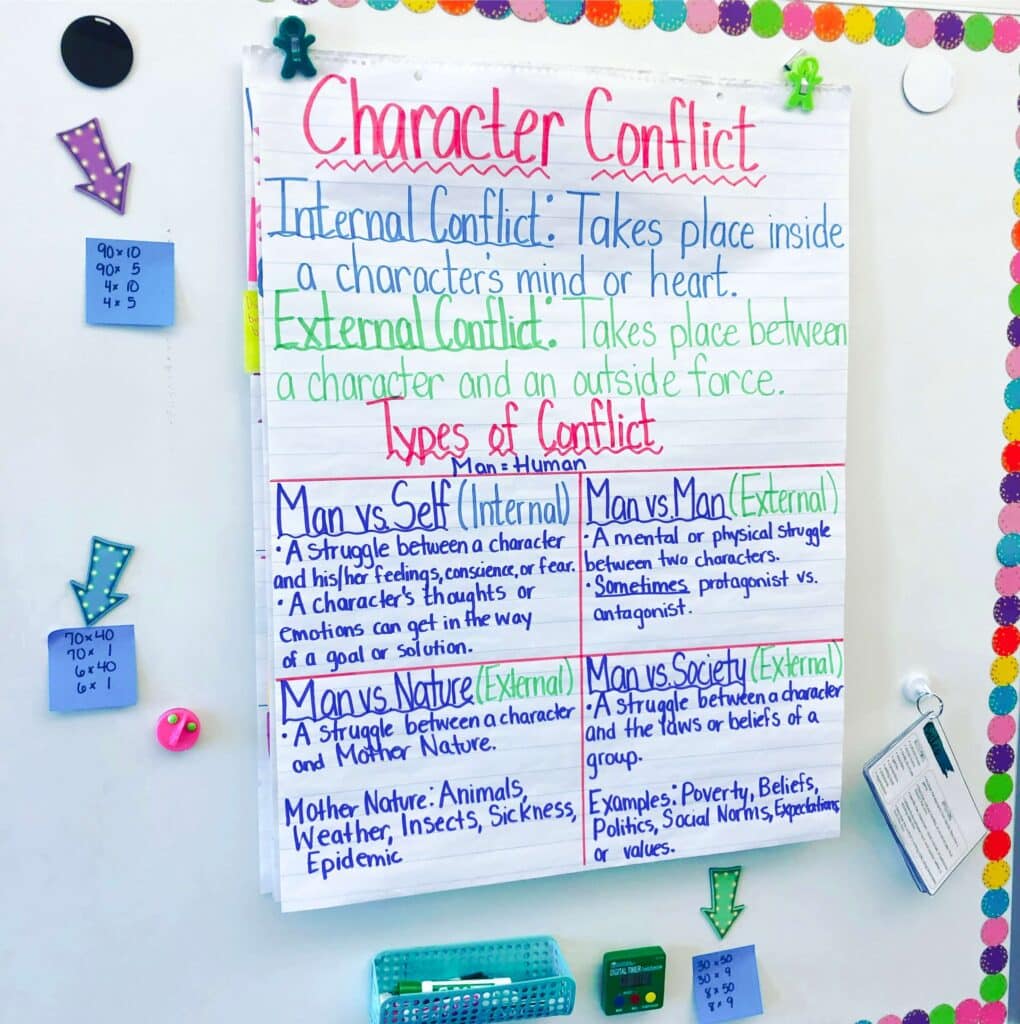 Character Conflict
Internal Conflict: Takes place inside
a character's mind or heart.
External Conflict: Takes place between
a character and an outside force.
Types of Conflict
Man = Human
Man vs. Self (Internal)
• A struggle between a character
and his/her feelings, conscience, or fear.
• A character's thoughts or
emotions can get in the way
of a goal or solution.
Man vs. Man (External)
• A mental or physical struggle
between two characters.
• Sometimes protagonist vs.
antagonist.
Man vs. Nature (External)
• A struggle between a character
and Mother Nature.
Mother Nature: Animals,
Weather, Insects, Sickness,
Epidemic
Man vs. Society (External)
• A struggle between a character
and the laws or beliefs of a
group.
Examples: Poverty, Beliefs,
Politics, Social Norms, Expectations,
or values.
90 x 10
90 x 5
4 x 10
4 x 5
70 x 40
70 x 1
6 x 40
6 x 1
DIGITAL TIMER
30 x 50
30 x 9
8 x 50
8 x 9